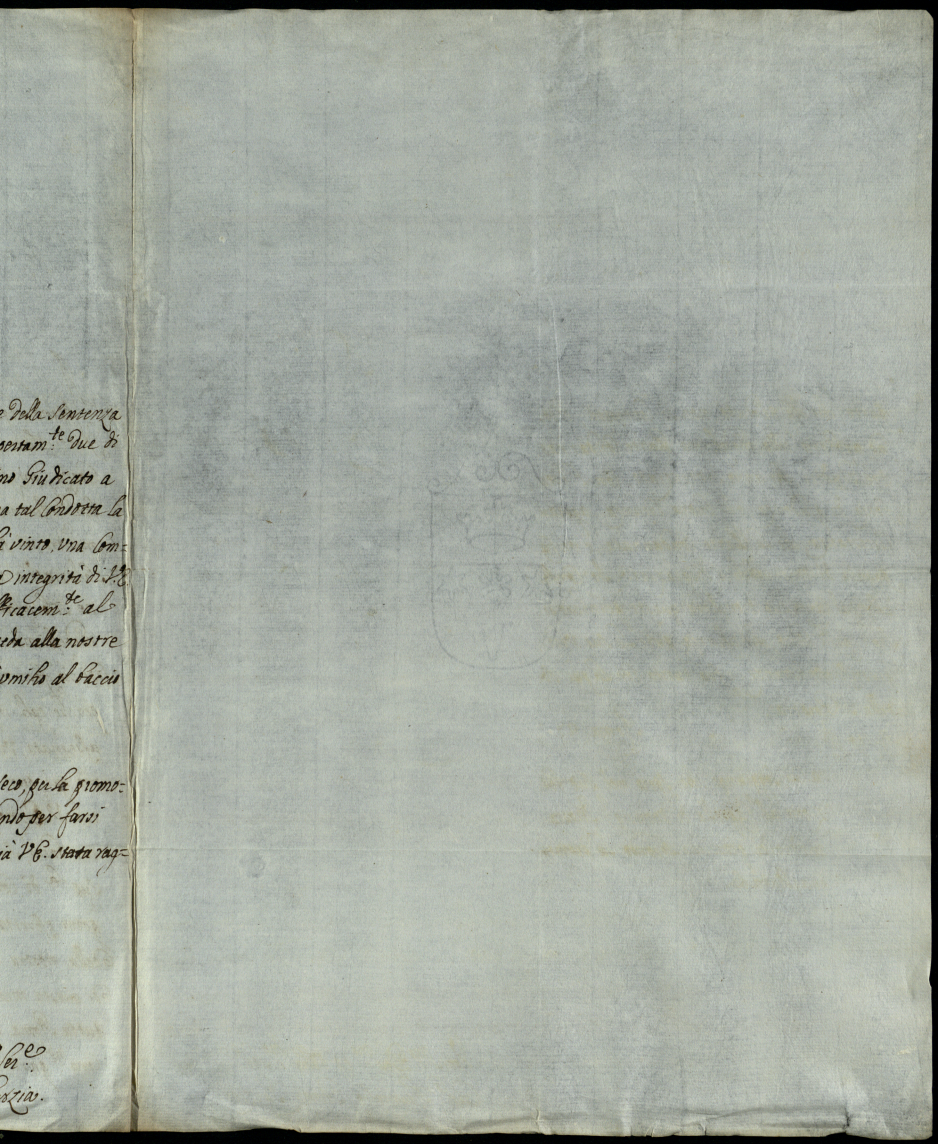 e della Sentenza
pertam:te due di
no Giudicato a
a tal Condotta la
à vinto, una Com=
integrità di V.E.
icacem:te al
eda alla nostre
umilio al baccio
eco, per la promo=
ndo per farsi
ià V.E. stata rag=
Ser:e